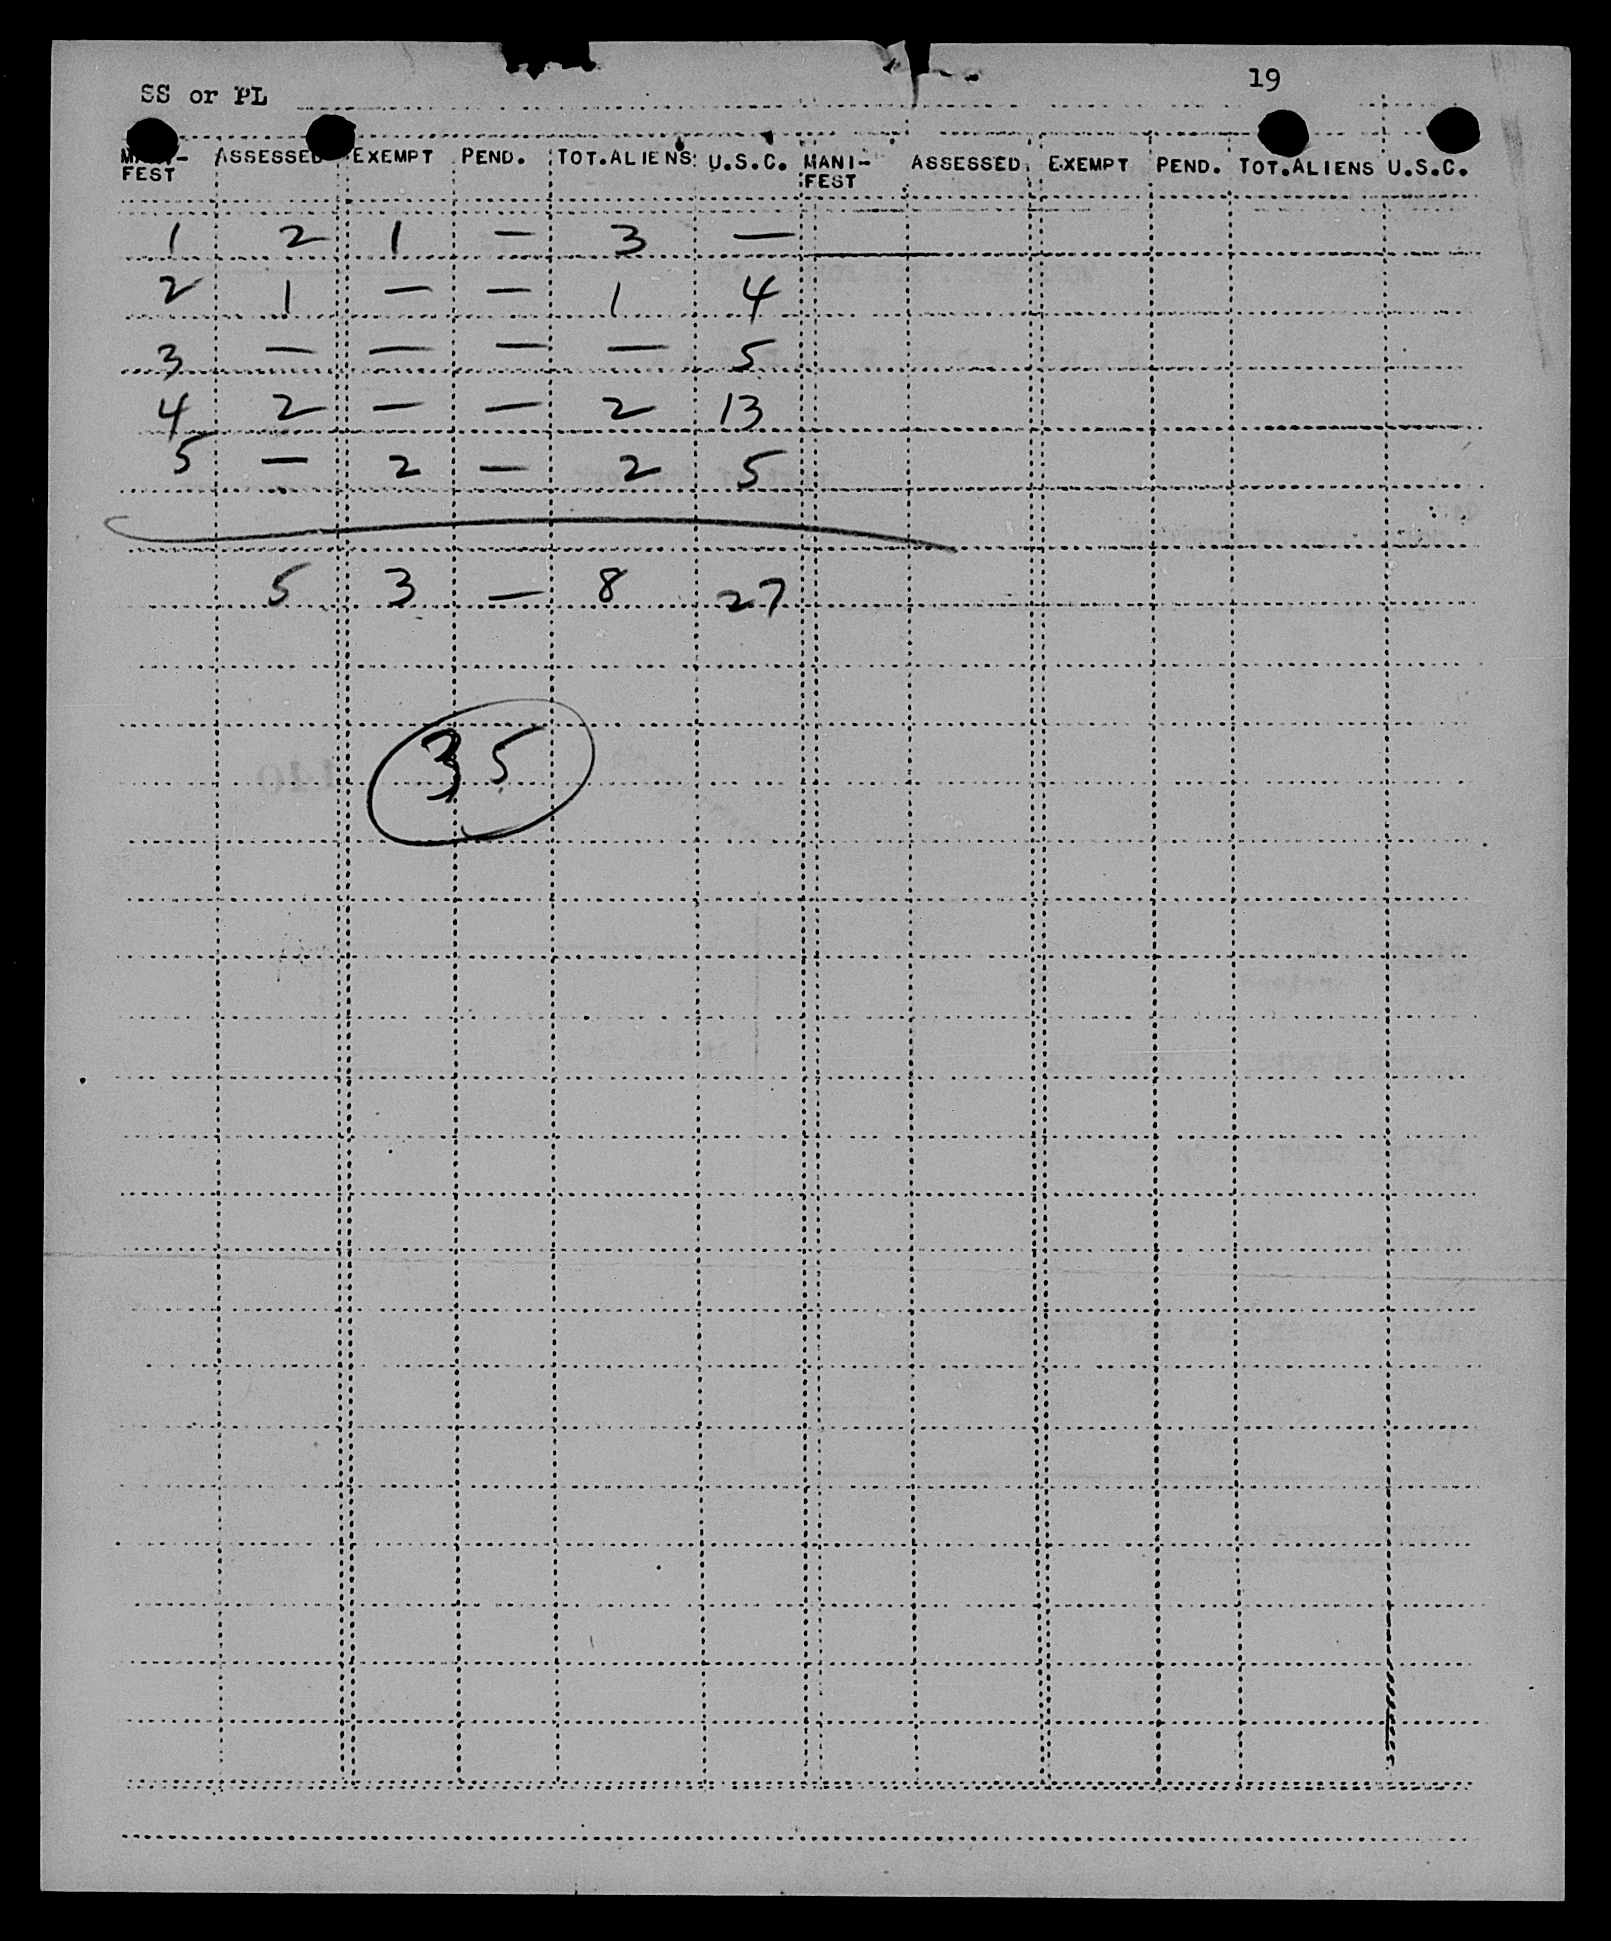 SS or PL 19
MANI- ASSESSED EXEMPT PEND. TOT.ALIENS U.S.C. MANI- ASSESSED EXEMPT PEND. TOT.ALIENS U.S.C.
FEST FEST
1 2 1 — 3 —
2 1 — — 1 4
3 — — — — 5
4 2 — — 2 13
5 — 2 — 2 5
5 3 — 8 27
35